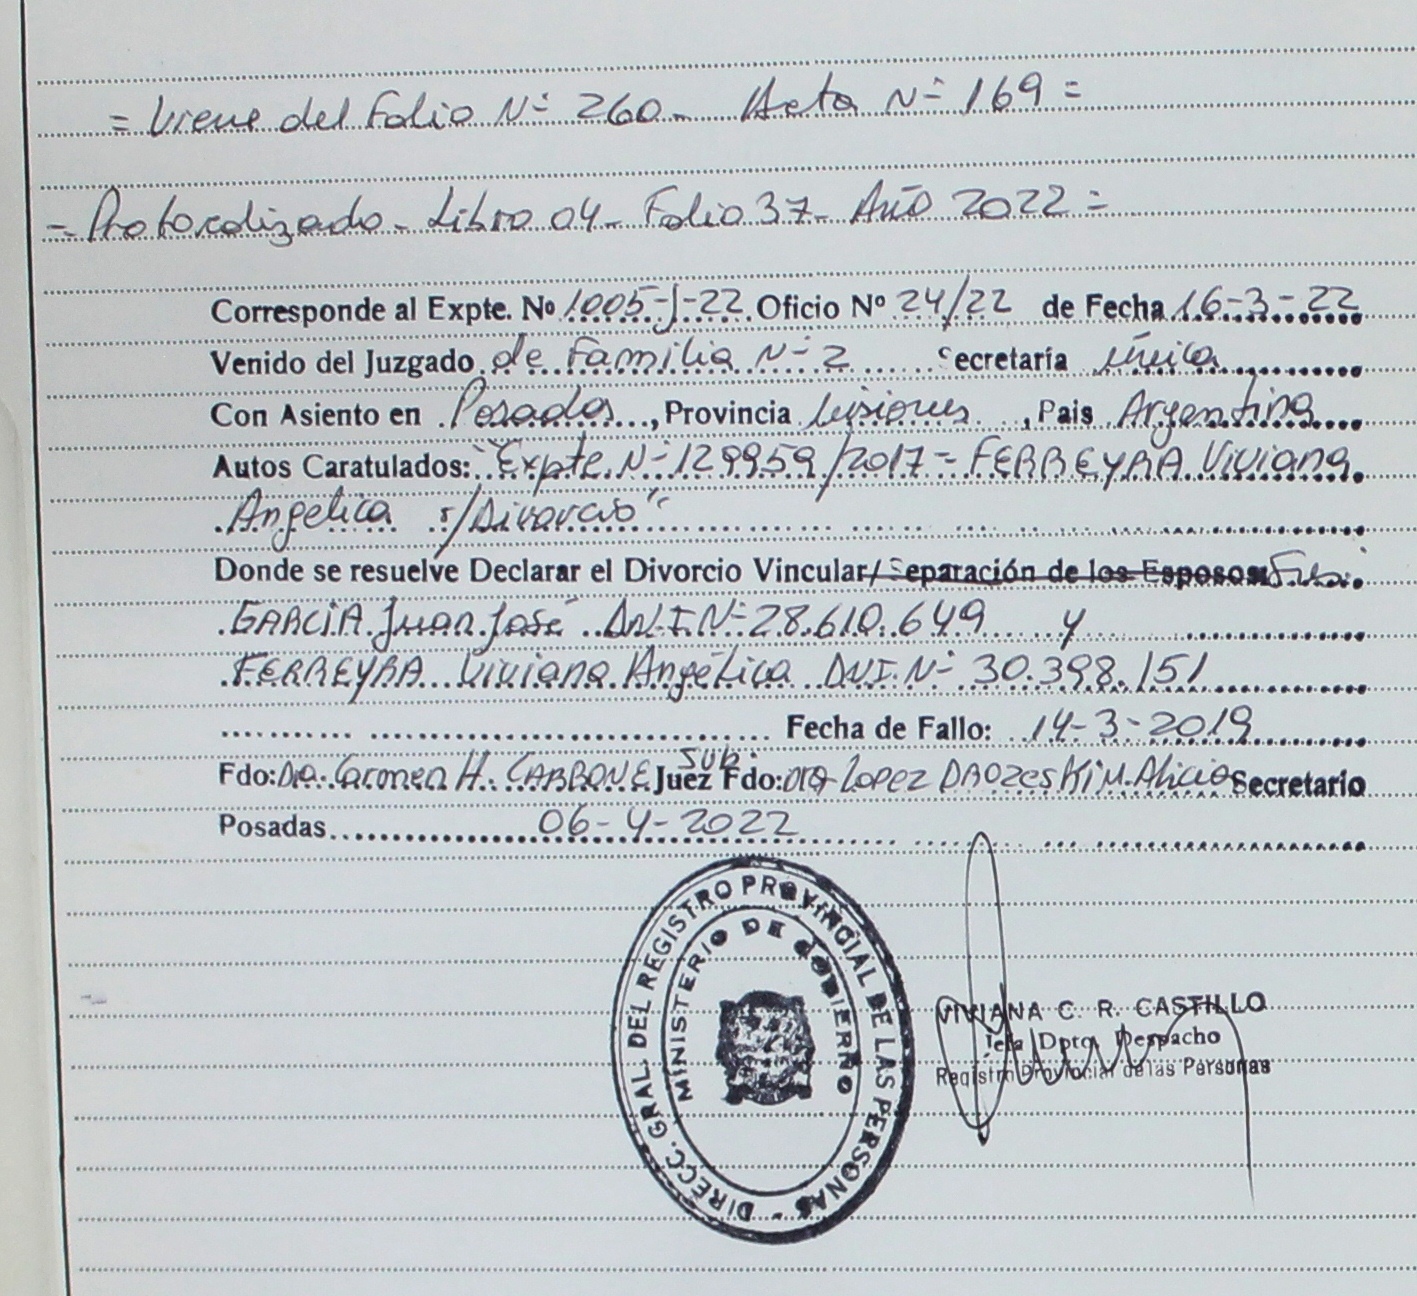 = Viene del Folio N° 260 - Acta N° 169 =
- Protocolizado - Libro 04 - Folio 37 - Año 2022 =
Corresponde al Expte. Nº 1005-J-22 Oficio Nº 24/22 de Fecha 16-3-22
Venido del Juzgado de Familia N° 2 Secretaría única
Con Asiento en Posadas, Provincia Misiones, Pais Argentina
Autos Caratulados: "Expte. N° 129959/2017 = FERREYRA Viviana
Angelica s/Divorcio"
Donde se resuelve Declarar el Divorcio Vincular/ Separación de los Esposos
GARCÍA Juan José D.N.I. N° 28.610.649 y
FERREYRA Viviana Angélica DNI. N° 30.398.151
Fecha de Fallo: 14-3-2019
Fdo: Dra. Carmen H. CARBONE Juez Sub. Fdo: Dra Lopez DROZESKI M. Alicia Secretario
Posadas 06-4-2022
DIRECC. GRAL. DEL REGISTRO PROVINCIAL DE LAS PERSONAS -
MINISTERIO DE GOBIERNO
VIVIANA C. R. CASTILLO
Jefa Dpto. Despacho
Registro Provincial de las Personas